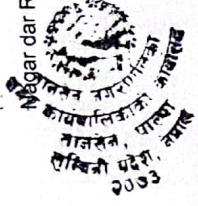 Nagar dar R
तानसेन नगरपालिका
नगर कार्यपालिकाको कार्यालय
तानसेन, पाल्पा
लुम्बिनी प्रदेश, नेपाल
२०७३